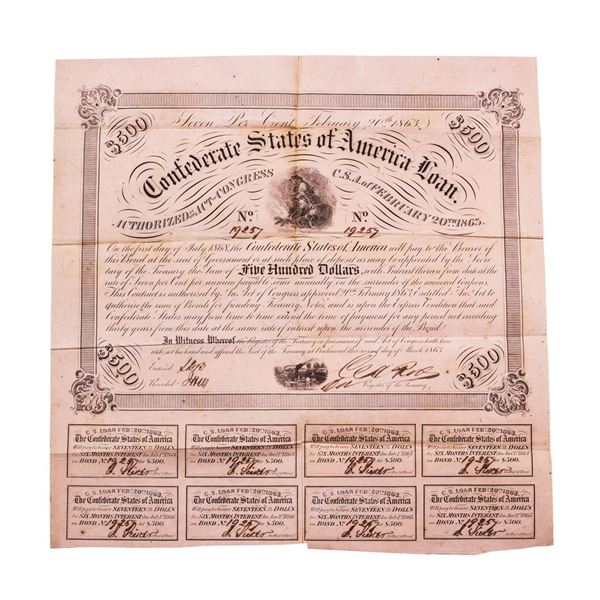 Seven Per Cent, February 20th 1863
$500 $500
Confederate States of America Loan.
AUTHORIZED BY ACT OF CONGRESS C.S.A. OF FEBRUARY 20TH 1863.
No No
19257 19257
On the first day of July 1868, the Confederate States of America will pay to the Bearer of
this Bond at the seat of Government or at such place of deposit as may be appointed by the Secre
tary of the Treasury the Sum of Five Hundred Dollars, with Interest thereon from date at the
rate of Seven per Cent per annum payable semi annually on the surrender of the annexed Coupons.
This Contract is authorized by An Act of Congress approved 20th February 1863, Entitled An Act to
authorize the issue of Bonds for funding Treasury Notes, and is upon the Express Condition that said
Confederate States may from time to time extend the time of payment for any period not exceeding
thirty years from this date at the same rate of interest upon the surrender of the Bond
In Witness Whereof the Register of the Treasury in pursuance of said Act of Congress hath here
unto set his hand and affixed the Seal of the Treasury at Richmond this second day of March 1863
$500 $500
Entered
Recorded
Register of the Treasury
C.S. LOAN FEB: 20TH 1863. C.S. LOAN FEB: 20TH 1863. C.S. LOAN FEB: 20TH 1863. C.S. LOAN FEB: 20TH 1863.
The Confederate States of America The Confederate States of America The Confederate States of America The Confederate States of America
Will pay to bearer SEVENTEEN DOLL'S Will pay to bearer SEVENTEEN DOLL'S Will pay to bearer SEVENTEEN DOLL'S Will pay to bearer SEVENTEEN DOLL'S
for SIX MONTHS INTEREST due for SIX MONTHS INTEREST due for SIX MONTHS INTEREST due for SIX MONTHS INTEREST due
on BOND No 19257 for $500. on BOND No 19257 for $500. on BOND No 19257 for $500. on BOND No 19257 for $500.
C.S. LOAN FEB: 20TH 1863. C.S. LOAN FEB: 20TH 1863. C.S. LOAN FEB: 20TH 1863. C.S. LOAN FEB: 20TH 1863.
The Confederate States of America The Confederate States of America The Confederate States of America The Confederate States of America
Will pay to bearer SEVENTEEN DOLL'S Will pay to bearer SEVENTEEN DOLL'S Will pay to bearer SEVENTEEN DOLL'S Will pay to bearer SEVENTEEN DOLL'S
for SIX MONTHS INTEREST due for SIX MONTHS INTEREST due for SIX MONTHS INTEREST due for SIX MONTHS INTEREST due
on BOND No 19257 for $500. on BOND No 19257 for $500. on BOND No 19257 for $500. on BOND No 19257 for $500.